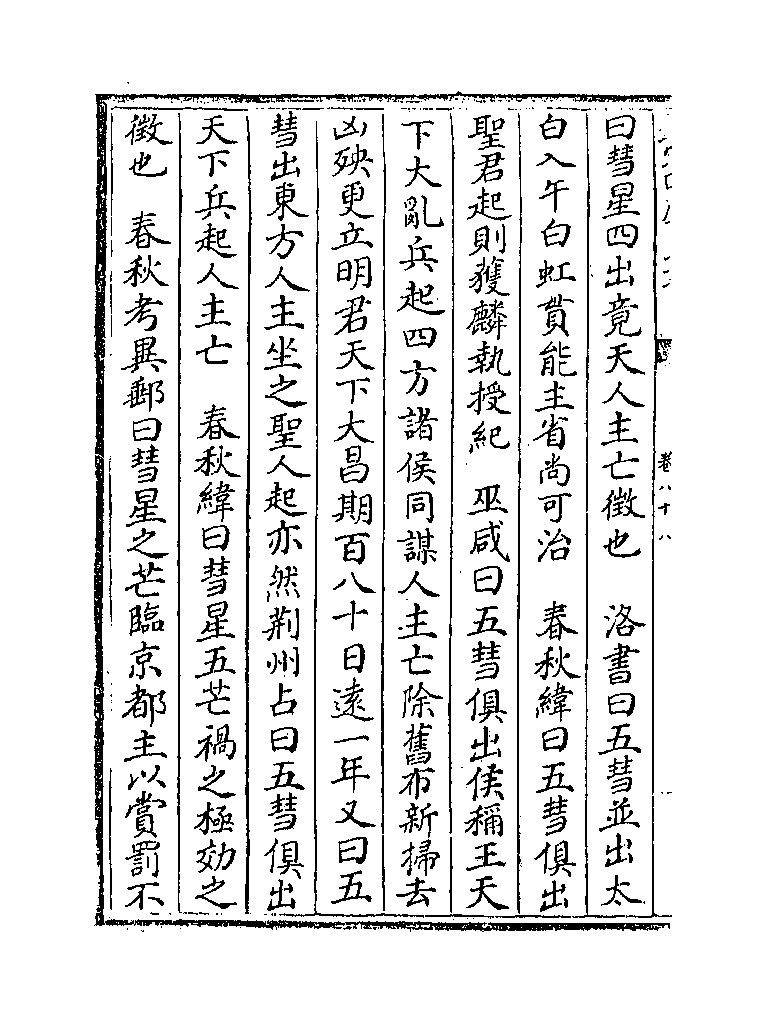 曰彗星四出竟天人主亡徵也　洛書曰五彗並出太
白入午白虹貫能主省尚可治　春秋緯曰五彗俱出
聖君起則獲麟執授紀　巫咸曰五彗俱出侯稱王天
下大亂兵起四方諸侯同謀人主亡除舊布新掃去
凶殃更立明君天下大昌期百八十日遠一年又曰五
彗出東方人主坐之聖人起亦然荆州占曰五彗俱出
天下兵起人主亡　春秋緯曰彗星五芒禍之極効之
徵也　春秋考異郵曰彗星之芒臨京都主以賞罰不
卷八十八